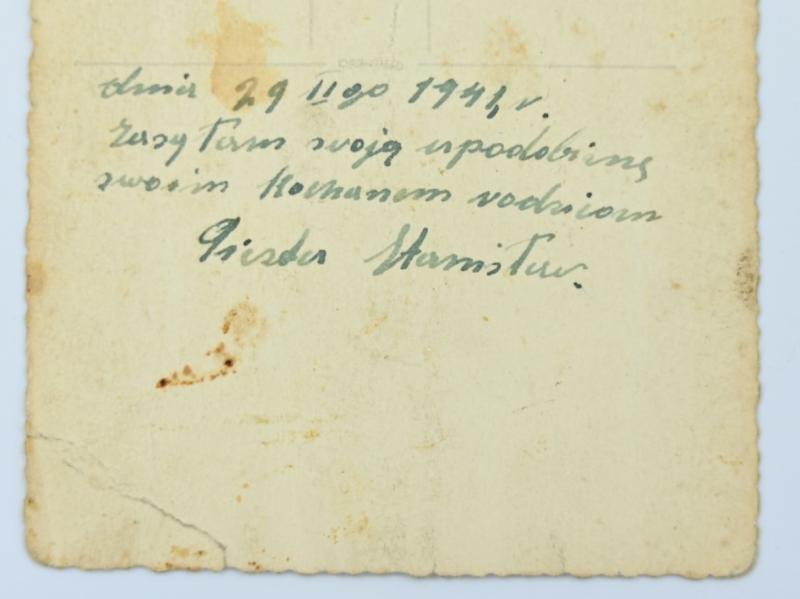 dnia 29 II go 1941, r.
Zasyłam swoją upodobiznę
swoim Kochanem rodziom
Stanisław.